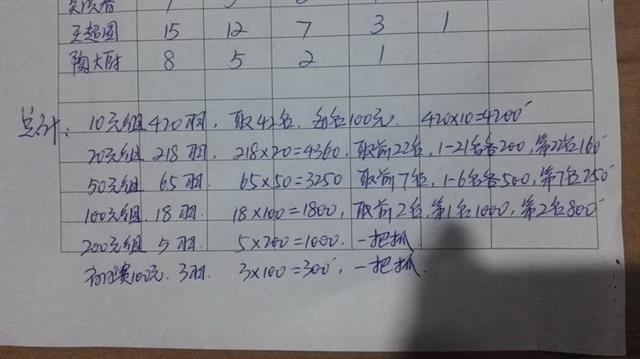 王超国 15 12 7 3 1
陶大财 8 5 2 1
总计：10元组 420羽，取42名，每名100元，420×10=4200
20元组 218羽，218×20=4360，取前22名，1-21名各200，第22名160
50元组 65羽 65×50=3250 取前7名，1-6名各500，第7名250
100元组 18羽 18×100=1800，取前2名，第1名1000，第2名800
200元组 5羽 5×200=1000，一把抓
100元，3羽 3×100=300，一把抓